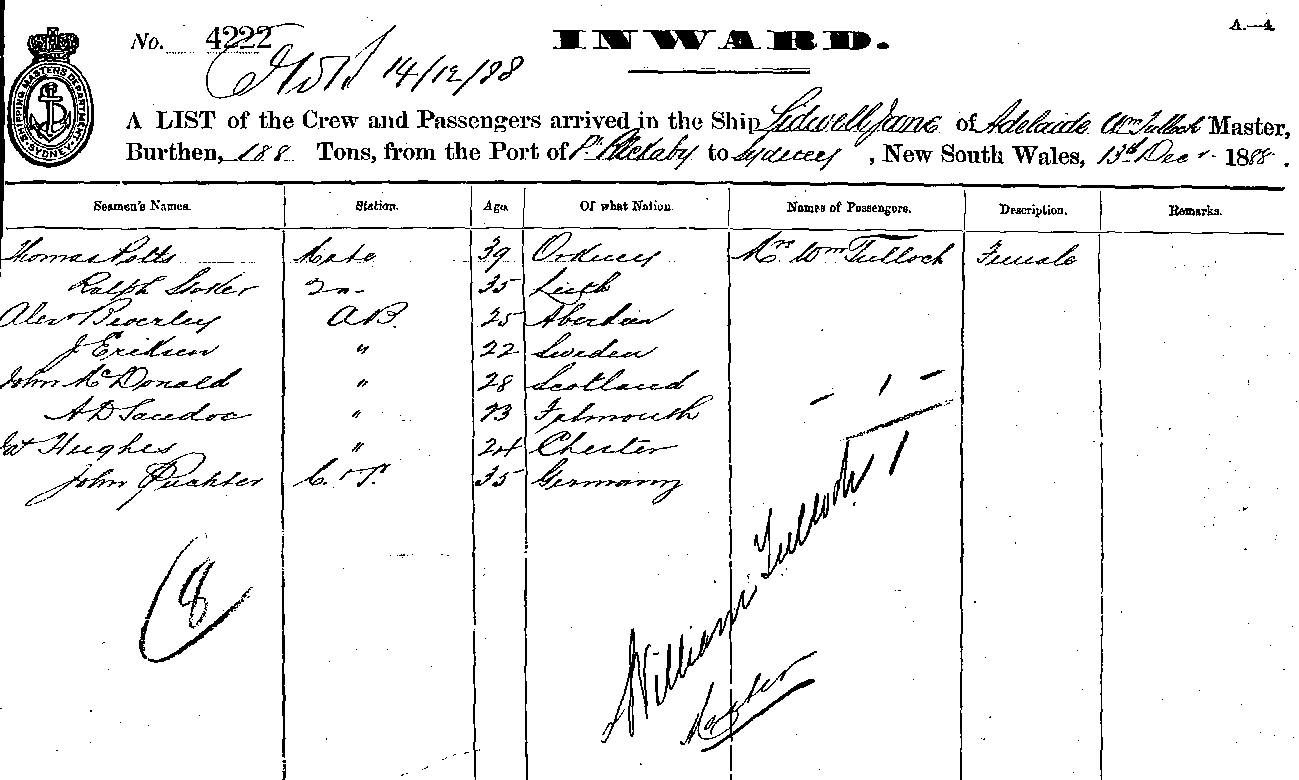 No. 4222 INWARD. A.—4
14/12/88
SHIPPING MASTERS DEPARTMENT SYDNEY
A LIST of the Crew and Passengers arrived in the Ship Lidwell Jane of Adelaide Wm Tulloch Master,
Burthen, 188 Tons, from the Port of Pt to Sydney, New South Wales, 13th Decr 1888.
Seamen's Names. Station. Age. Of what Nation. Names of Passengers. Description. Remarks.
Thomas Potts Mate 39 Orkney Mrs Wm Tulloch Female
Ralph 2n 35 Leith
Alexr Beverley A.B. 25
J Eriksen " 22 Sweden
John McDonald " 28 Scotland
A D " 23 Falmouth
Hughes " 24 Chester
John C & S. 35 Germany
- 1 -
1
8
William Tulloch
Master